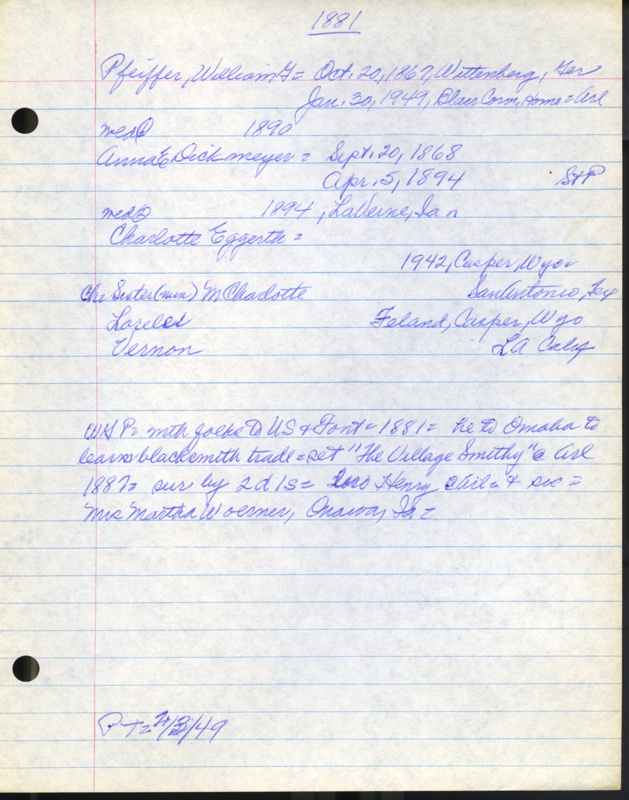 1881
Pfeiffer, William G = Oct. 20, 1867, Wittenberg, Ger
Jan. 30, 1949, Blair Conv, Home = Arl
med① 1890
Anna E Dickmeyer = Sept. 20, 1868
Apr. 5, 1894 St P
med② 1894, LaVerne, Ia
Charlotte Eggerth =
1942, Casper, Wyo
Ch: Sister (nun) M Charlotte San Antonio, Tex
Loreles Feland, Casper, Wyo
Vernon LA Calif
WGP = with folks to US & Font = 1881 = he to Omaha to
learn blacksmith trade = set "The Village Smithy" @ Arl
1887 = sur by 2d 1s = bro Henry & sis =
Mrs Martha Woerner, Onawa, Ia =
PT = 2/3/49